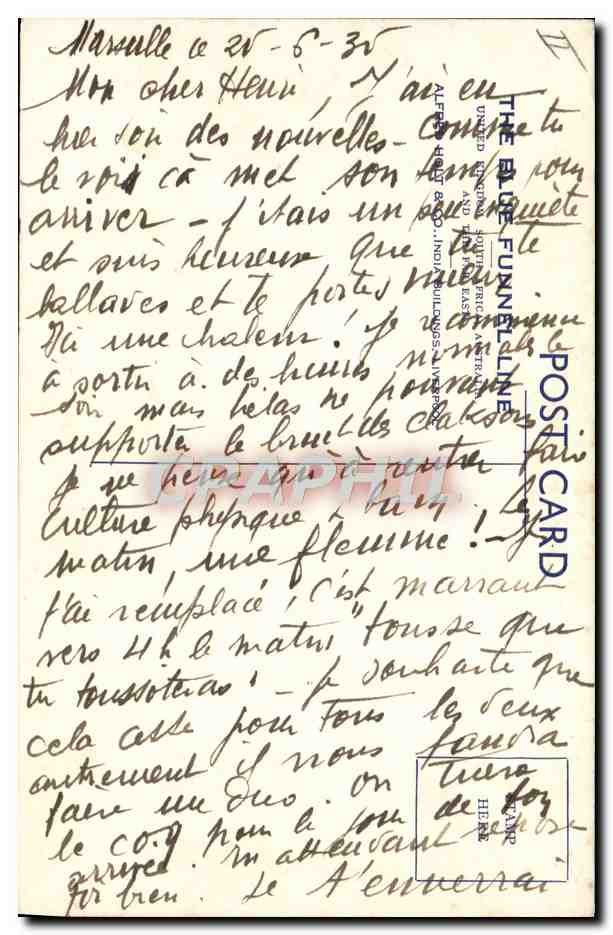 II
Marseille ce 20-6-30
Mon cher Henri, J'ai eu
hier soir des nouvelles - Comme tu
le vois ça met son temps pour
arriver - J'étais un peu inquiète
et suis heureuse que tu te
ballades et te portes mieux
Ici une chaleur ! Je recommence
à sortir à des heures normales le
soir mais hélas ne pouvant
supporter le bruit des claksons
je ne pense qu'à rentrer faire
culture physique
matin, une flemme !
j'ai remplacé, c'est marrant
vers 4 h le matin "tousse que
tu toussoteras" - je souhaite que
cela cesse pour tous les deux
autrement il nous faudra
faire un duo. on tuera
le coq pour le jour de ton
arrivée. En attendant repose
toi bien. Je t'enverrai
POST CARD
THE BLUE FUNNEL LINE
UNITED KINGDOM, SOUTH AFRICA, AUSTRALIA
AND THE FAR EAST
ALFRED HOLT & CO., INDIA BUILDINGS, LIVERPOOL
STAMP
HERE
CPAPHIL